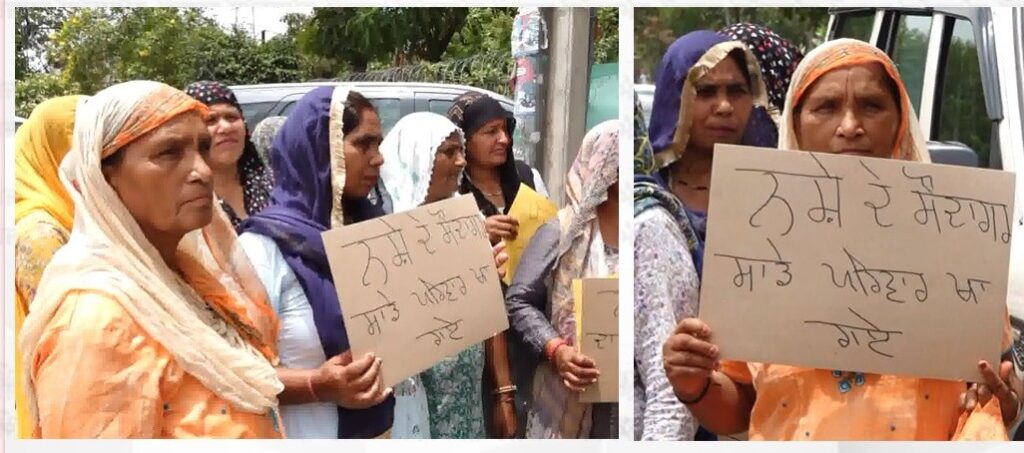 ਨਸ਼ੇ ਦੇ ਸੌਦਾਗਰ
ਸਾਡੇ ਪਰਿਵਾਰ ਖਾ
ਗਏ
ਨਸ਼ੇ ਦੇ ਸੌਦਾਗਰ
ਸਾਡੇ ਪਰਿਵਾਰ ਖਾ
ਗਏ